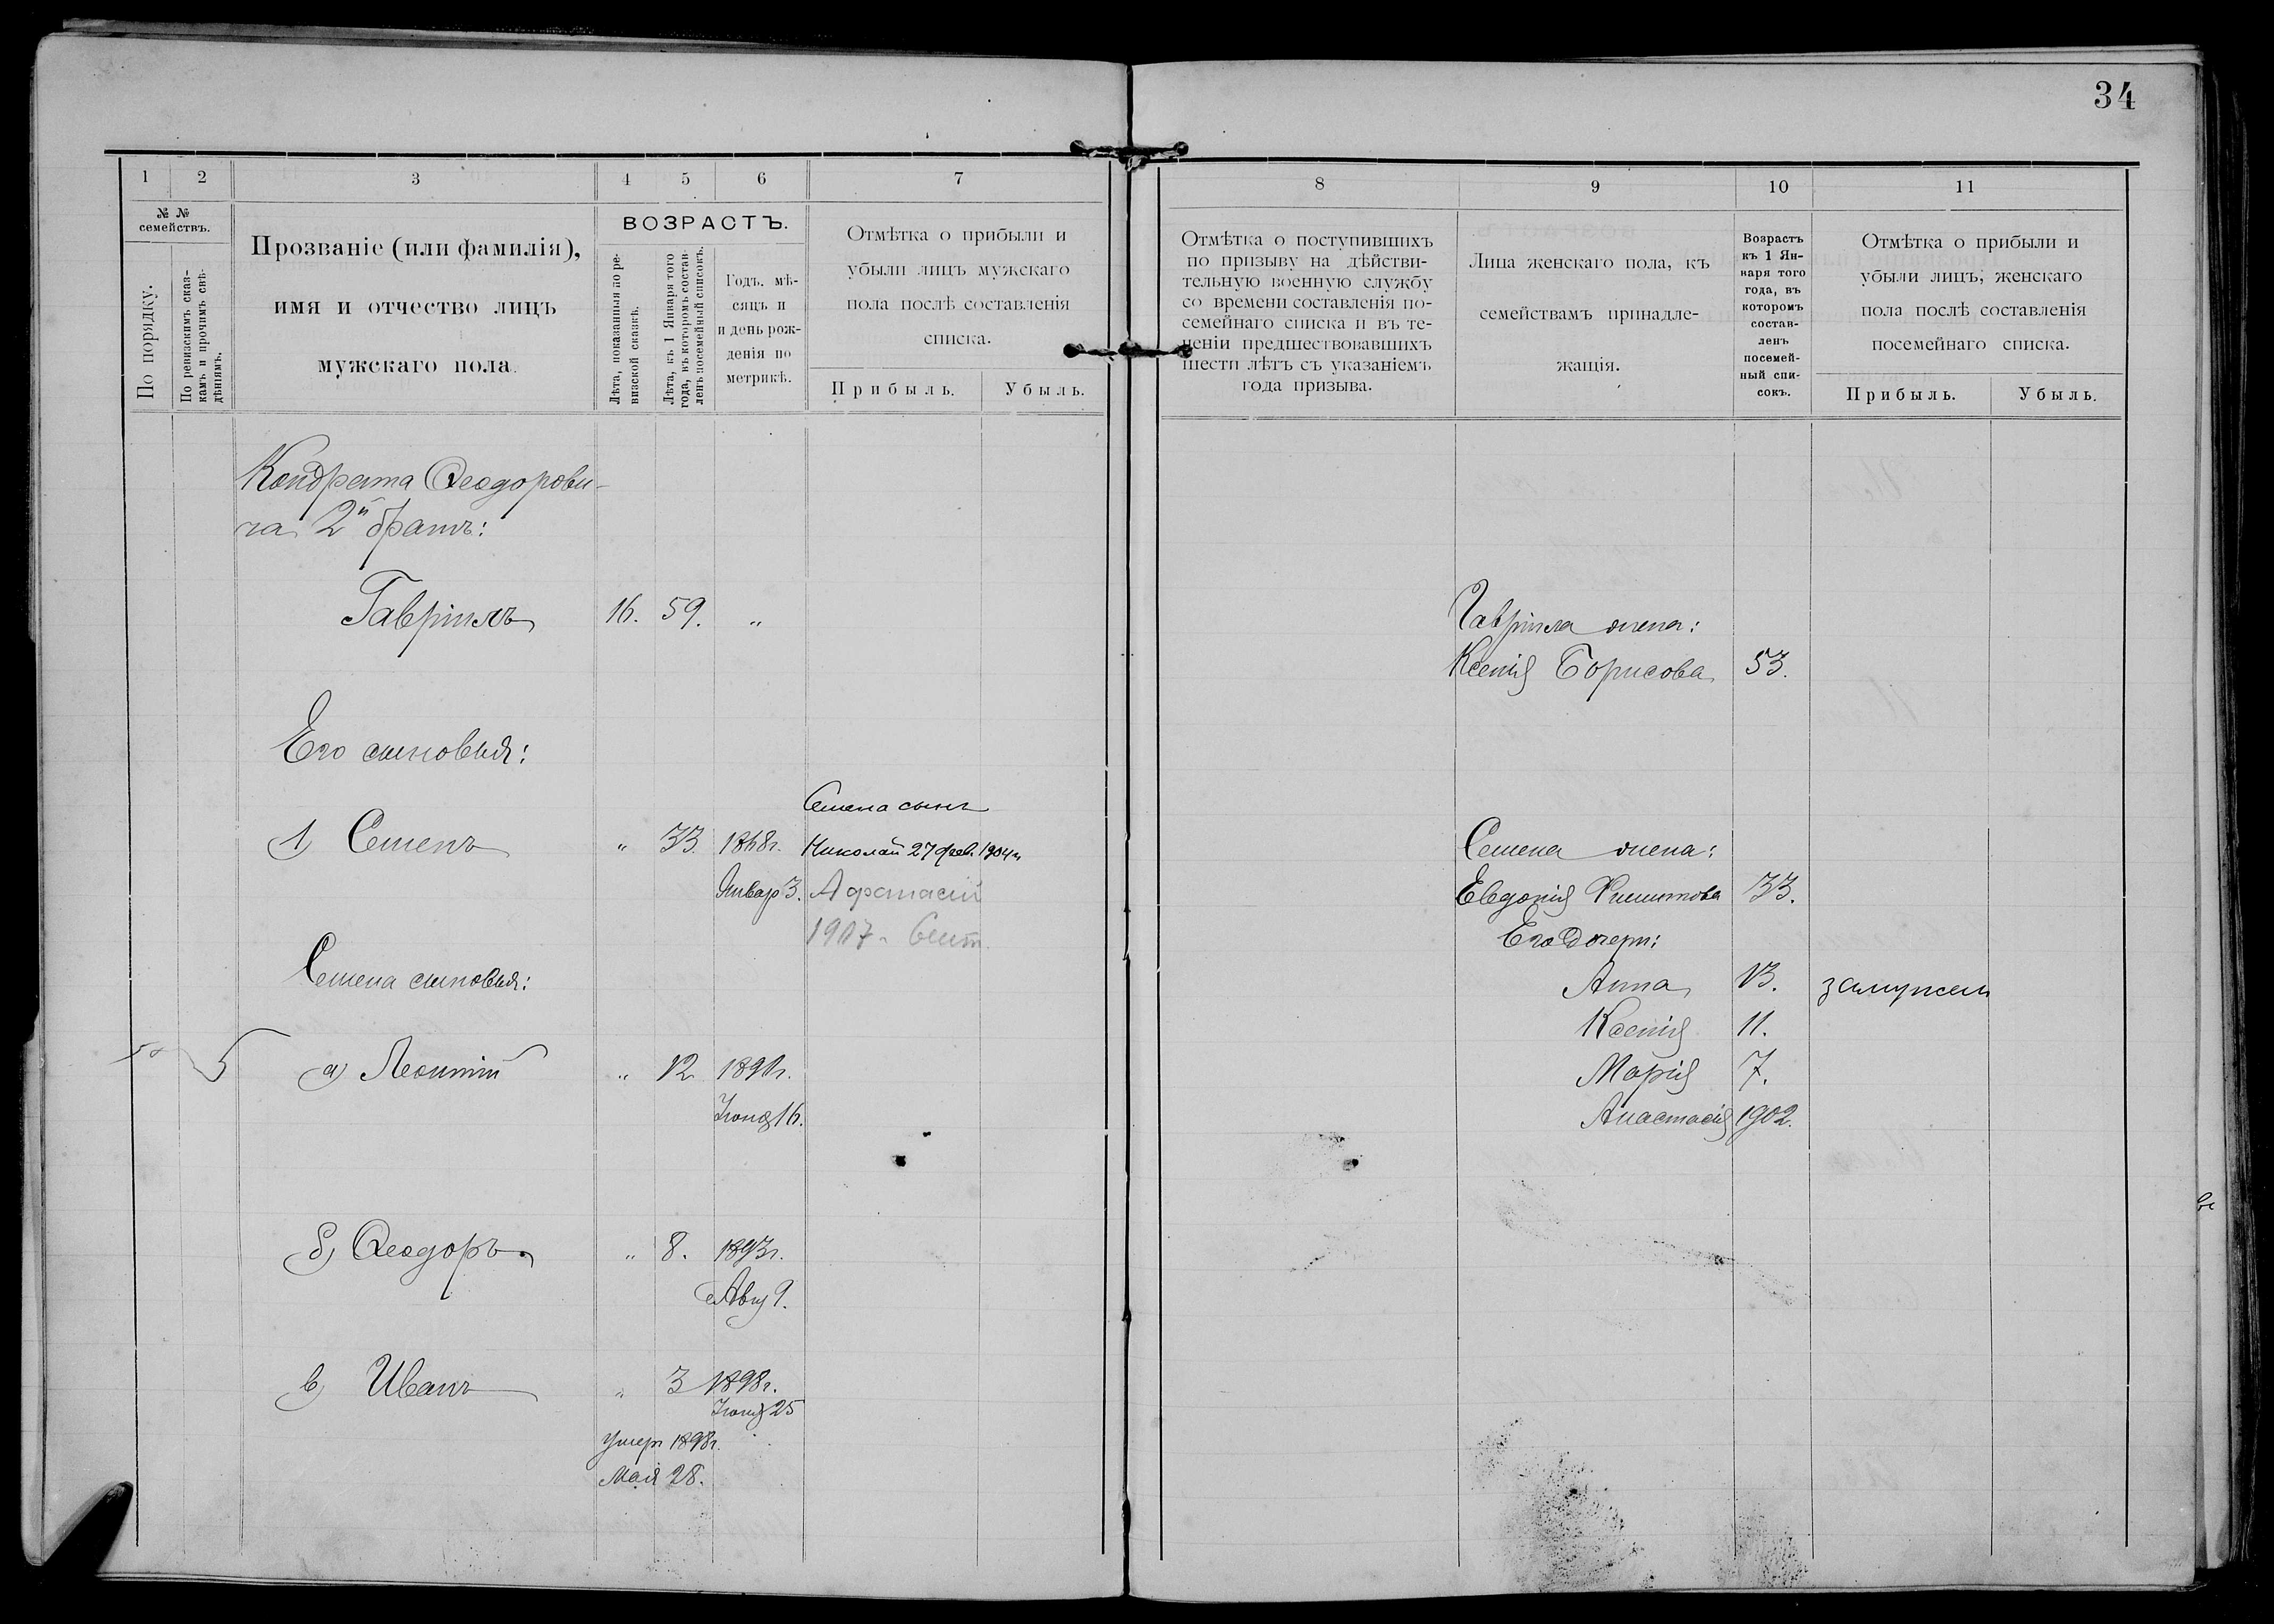 34
1
2
3
4
5
6
7
№ №
семействъ.
По порядку.
По ревизскимъ сказ-
камъ и прочимъ свѣ-
дѣніямъ.
Прозваніе (или фамилія),
имя и отчество лицъ
мужскаго пола.
ВОЗРАСТЪ.
Лѣта, показанныя по ре-
визской сказкѣ.
Лѣта, къ 1 Января того
года, въ которомъ состав-
ленъ посемейный списокъ.
Годъ, мѣ-
сяцъ и
и день рож-
денія по
метрикѣ.
Отмѣтка о прибыли и
убыли лицъ мужскаго
пола послѣ составленія
списка.
Прибыль.
Убыль.
Кондрата Ѳеодорови-
ча 2й братъ:
Гавріилъ 16. 59. "
Его сыновья:
Семена сынъ
1) Семенъ " 33. 1868г. Николай 27 фев. 1904г
Январ 3. Афанасий
1907 г. Сент.
Семена сыновья:
а) Леонтій " 12 1891г.
Іюня 16.
б) Ѳеодоръ " 8. 1893г.
Авг 9.
в) Иванъ " 3 1898г.
Іюня 25
Умеръ 1898г.
Мая 28.
8
9
10
11
Отмѣтка о поступившихъ
по призыву на дѣйстви-
тельную военную службу
со времени составленія по-
семейнаго списка и въ те-
ченіи предшествовавшихъ
шести лѣтъ съ указаніемъ
года призыва.
Лица женскаго пола, къ
семействамъ принадле-
жащія.
Возрастъ
къ 1 Ян-
варя того
года, въ
которомъ
состав-
ленъ
посемей-
ный спи-
сокъ.
Отмѣтка о прибыли и
убыли лицъ, женскаго
пола послѣ составленія
посемейнаго списка.
Прибыль.
Убыль.
Гавріила жена:
Ксенія Борисова 53.
Семена жена:
Евдокія 33.
Его дочери:
Анна 13. замужем
Ксенія 11.
Марія 7.
Анастасія 1902.